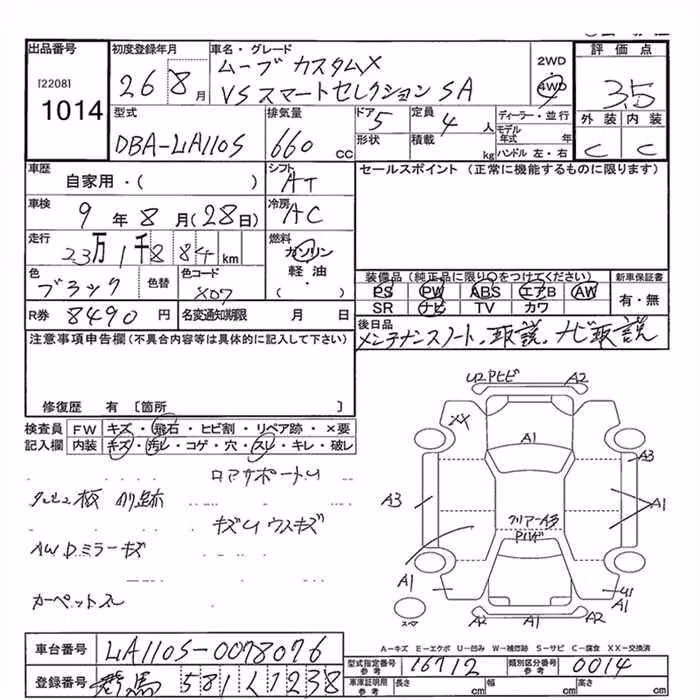 出品番号
[2208]
1014
初度登録年月
26 8月
車名・グレード
ムーブ カスタムX
VSスマートセレクション SA
2WD
4WD
評価点
3.5
外装 内装
C C
型式
DBA-LA110S
排気量
660 CC
ドア 5
形状
定員 4 人
積載 kg
ディーラー・並行
モデル年式 年
ハンドル 左・右
車歴
自家用・( )
シフト
AT
セールスポイント (正常に機能するものに限ります)
車検
9年 8月 (28日)
冷房
AC
走行
23万1千884 km
燃料
ガソリン
軽油・
( )
色
ブラック
色替
色コード
X07
装備品 (純正品に限り○をつけてください)
PS PW ABS エアB AW
SR ナビ TV カワ
新車保証書
有・無
R券 8490 円
名変通知期限 月 日
後日品
メンテナンスノート、取説、ナビ取説
注意事項申告欄 (不具合内容等は具体的に記入して下さい)
修復歴 有 [箇所 ]
検査員記入欄
FW キズ・飛石・ヒビ割・リペア跡・×要
内装 キズ・汚レ・コゲ・穴・スレ・キレ・破レ
ロアサポートU
キズU ウスキズ
AW Dミラーキズ
カーペットスレ
U2 Pヒビ A2
XX
A1
A3
A3
A1
クリアーハゲ
A1
U1
A2 A1 A2
A-キズ E-エクボ U-凹み W-補修跡 S-サビ C-腐食 XX-交換済
車台番号 LA110S-0078076
登録番号 群馬 581 1238
型式指定番号 参考 16712
類別区分番号 参考 0014
車庫証明用 参考 長さ cm 幅 cm 高さ cm